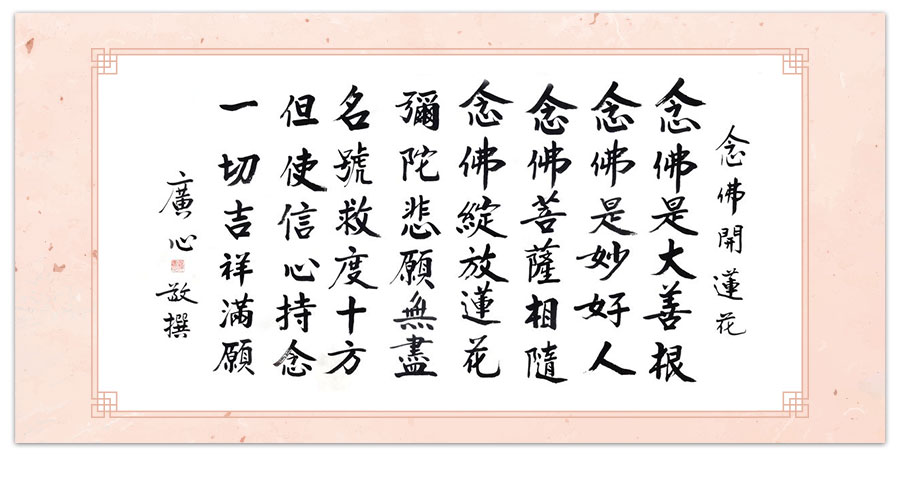 念佛開蓮花
念佛是大善根
念佛是妙好人
念佛菩薩相隨
念佛綻放蓮花
彌陀悲願無盡
名號救度十方
但使信心持念
一切吉祥滿願
廣心 敬撰